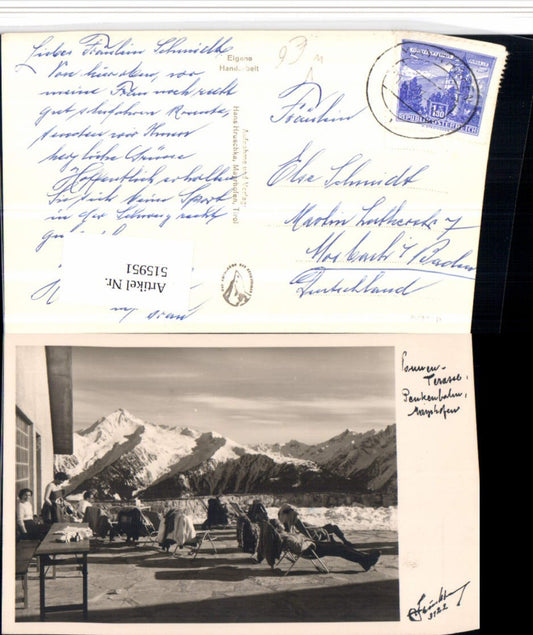 Liebes Fräulein Schmidt
Von hier oben, wo
meine Frau noch recht
gut skifahren konnte,
senden wir Ihnen
herzliche Grüsse
Hoffentlich erhalten
Sie sich beim Sport
in der Schweiz recht
Frau
Artikel Nr.
515951
Eigene
Handarbeit
Aufnahme und Verlag
Hans Hruschka, Mayrhofen, Tirol
1.50
REPUBLIK ÖSTERREICH
Fräulein
Else Schmidt
Martin Lutherstr 7
Mosbach i/ Baden
Deutschland
Sonnen-
Terasse,
Penkenbahn,
Mayrhofen
3122